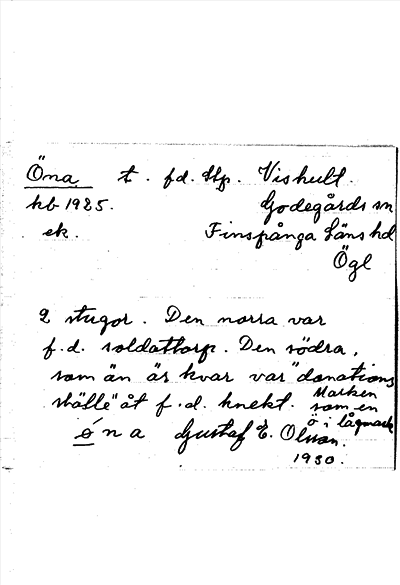 Öna t. f.d. stp. Vishult.
hb 1925. Godegårds sn
ek. Finspånga Läns hd
Ögl
2 stugor. Den norra var
f.d. soldattorp. Den södra,
som än är kvar var "donations
ställe" åt f.d. knekt. Marken
som en
ö i lågmark
ö́na Gustaf E. Olsson.
1930.